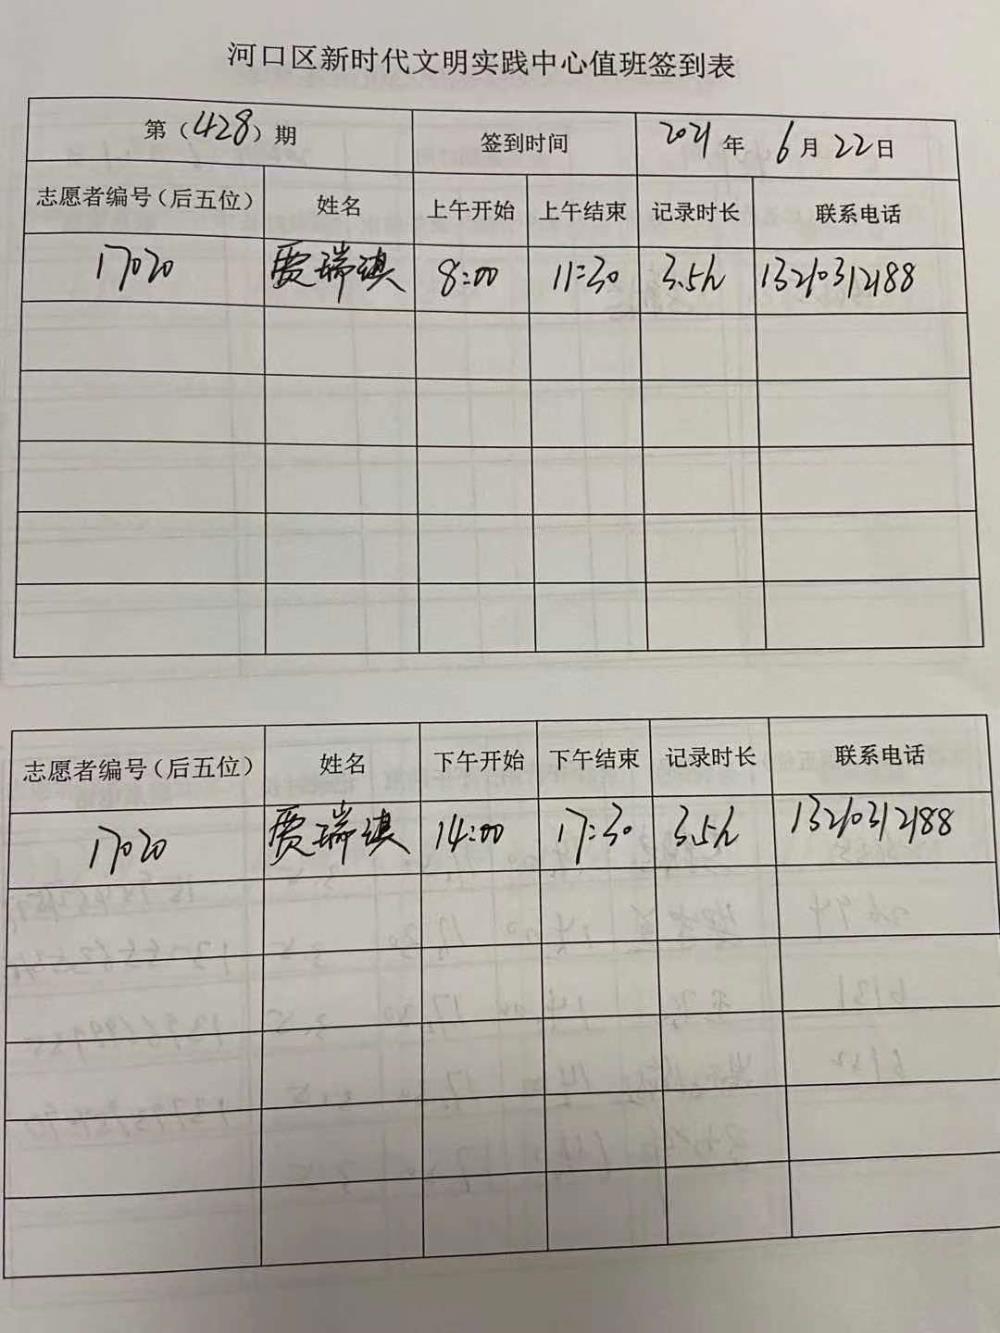 河口区新时代文明实践中心值班签到表
第（428）期 签到时间 2021年6月22日
志愿者编号（后五位） 姓名 上午开始 上午结束 记录时长 联系电话
17020 贾瑞淇 8:00 11:30 3.5h 13210312188
志愿者编号（后五位） 姓名 下午开始 下午结束 记录时长 联系电话
17020 贾瑞淇 14:00 17:30 3.5h 13210312188